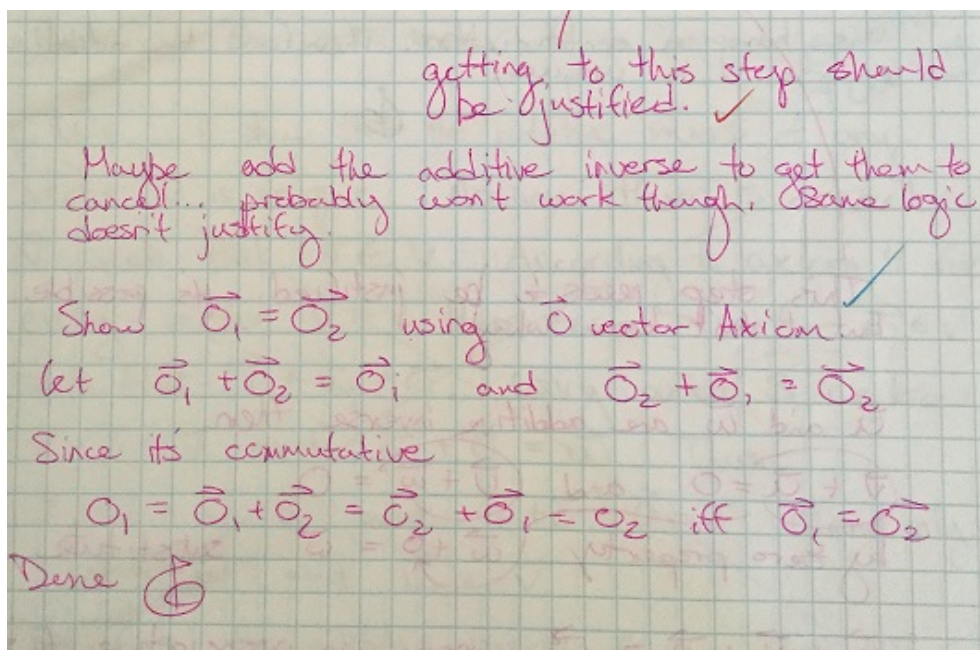 getting to this step should
be justified.
Maybe add the additive inverse to get them to
cancel... probably won't work though. Same logic
doesn't justify.
Show 0⃗₁ = 0⃗₂ using 0⃗ vector Axiom.
let 0⃗₁ + 0⃗₂ = 0⃗₁ and 0⃗₂ + 0⃗₁ = 0⃗₂
Since its commutative
0₁ = 0⃗₁ + 0⃗₂ = 0⃗₂ + 0⃗₁ = 0₂ iff 0⃗₁ = 0⃗₂
Done